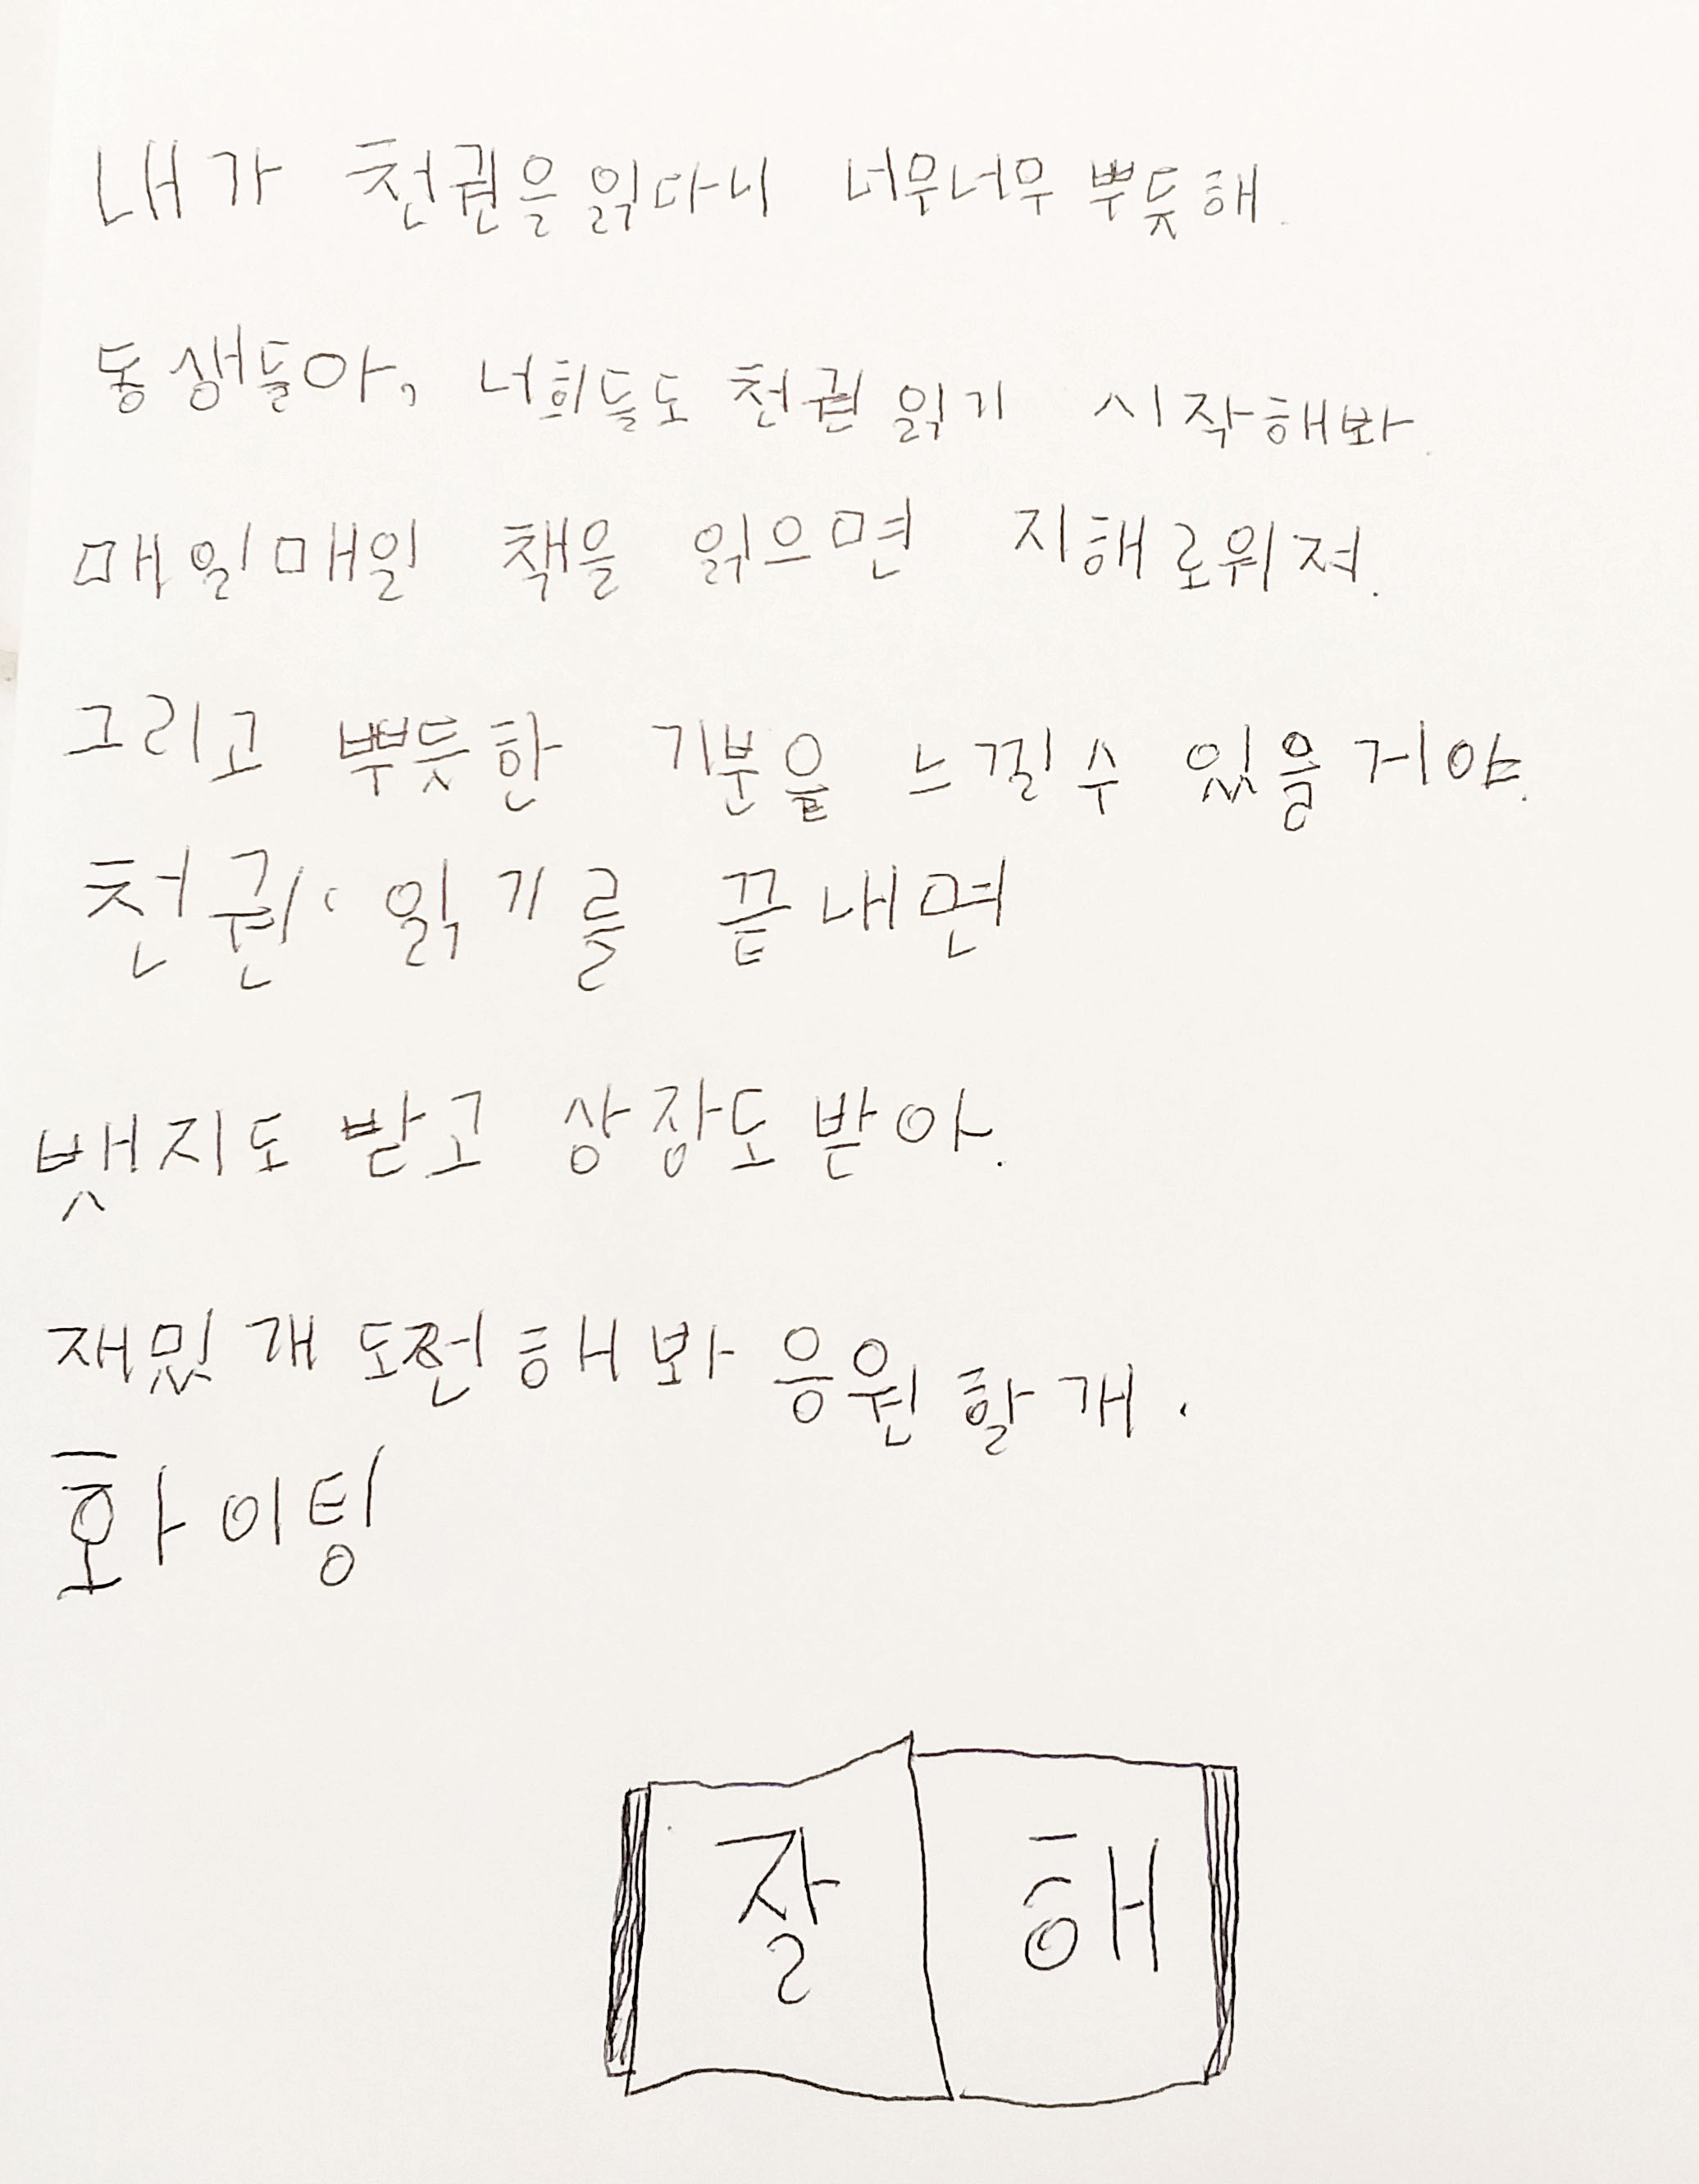 내가 천권을 읽다니 너무너무 뿌듯해.
동생들아, 너희들도 천권 읽기 시작해봐.
매일매일 책을 읽으면 지해로워져.
그리고 뿌듯한 기분을 느낄수 있을거야.
천권 읽기를 끝내면
뱃지도 받고 상장도 받아.
재밌개 도전해봐 응원할개.
화이팅
잘 해